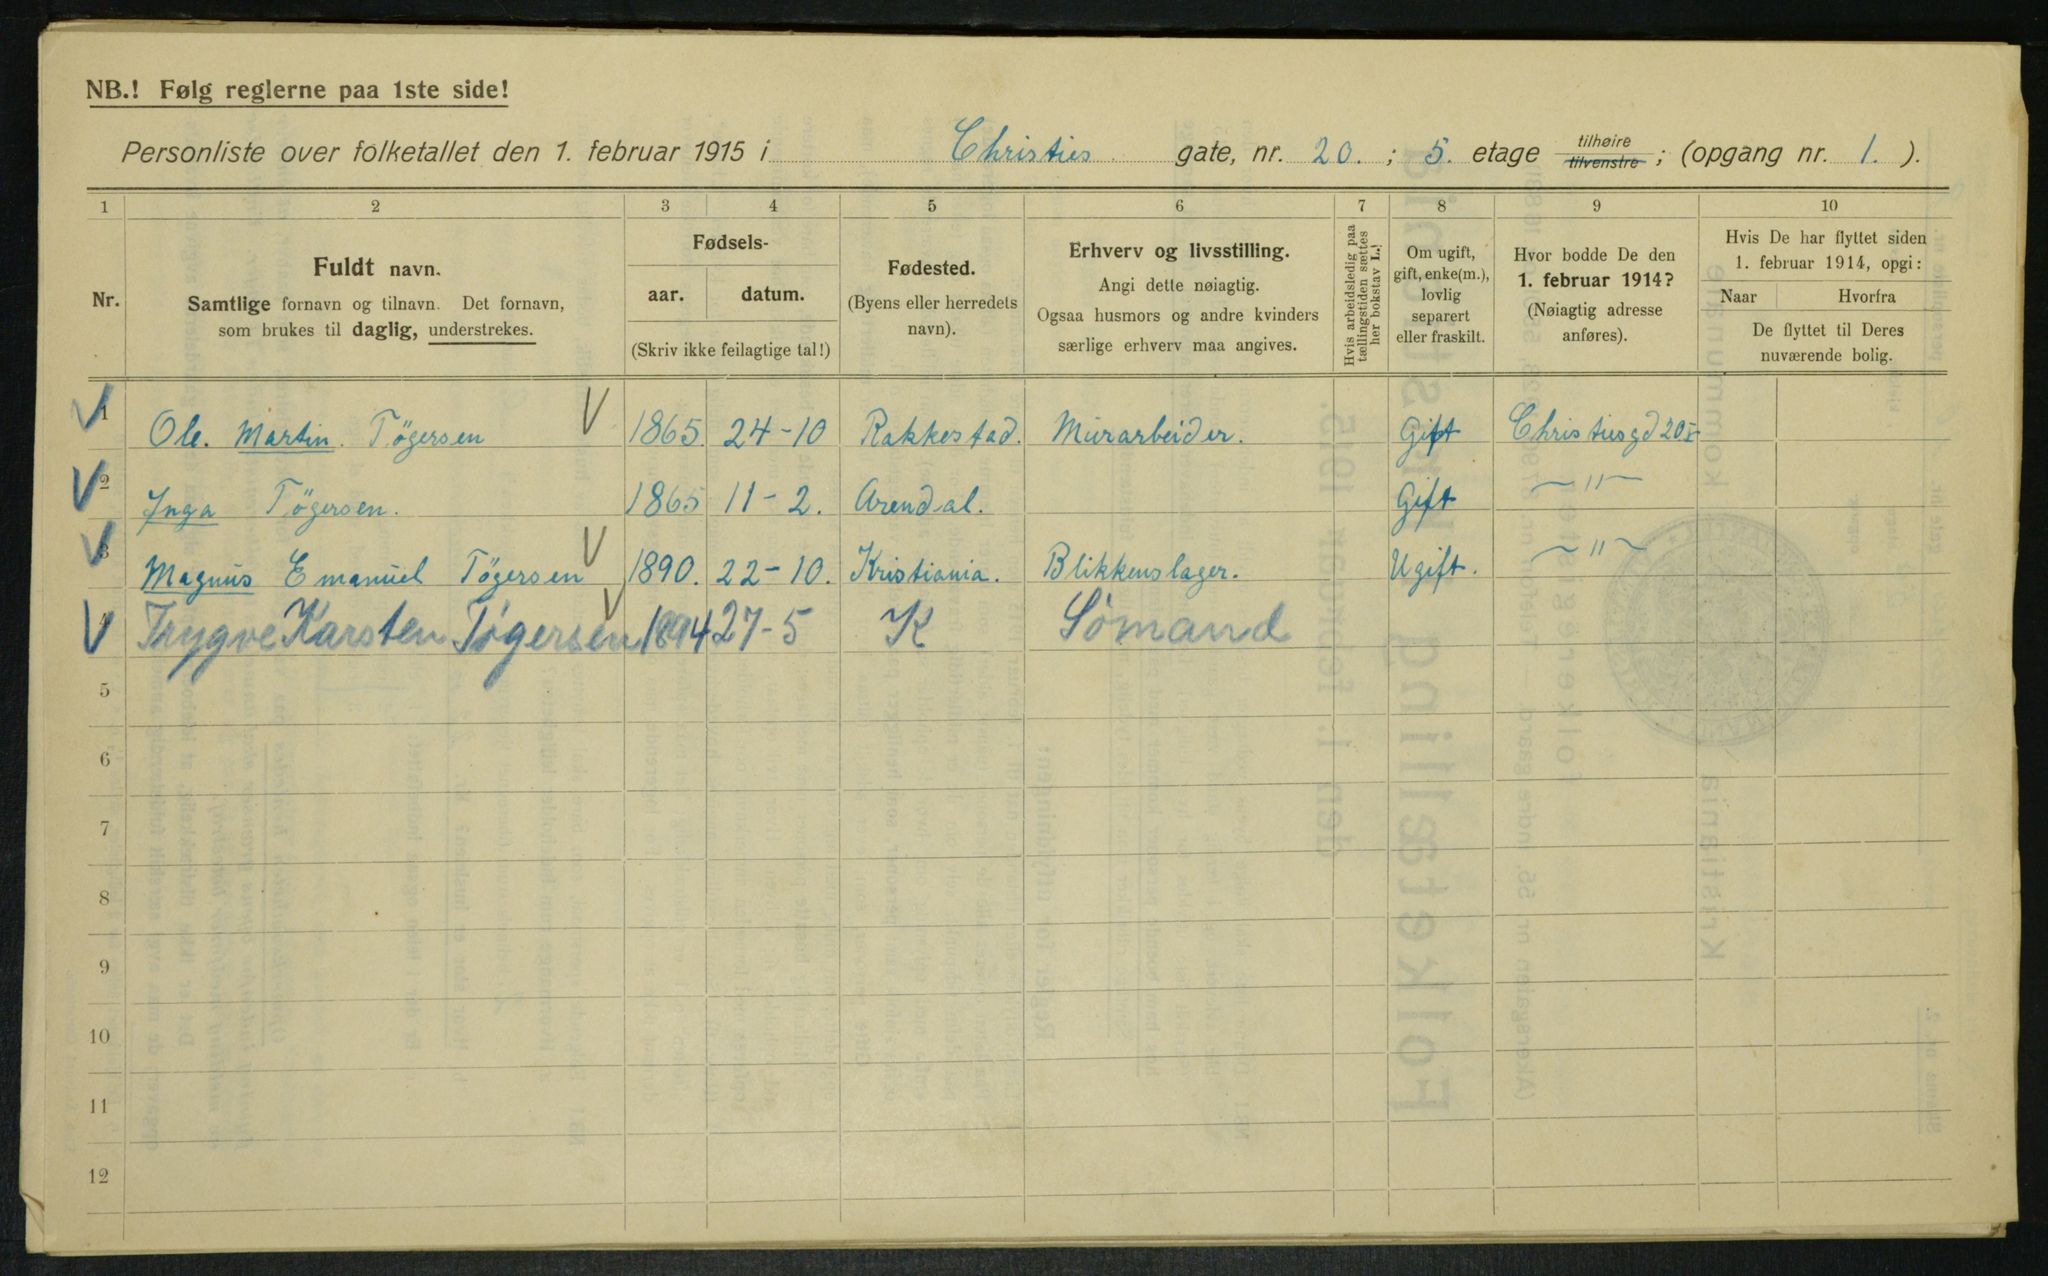 NB.! Følg reglerne paa 1ste side!
Personliste over folketallet den 1. februar 1915 i Christies gate, nr. 20. ; 5. etage tilhøire tilvenstre ; (opgang nr. 1. ).
1 2 3 4 5 6 7 8 9 10
Nr.
Fuldt navn.
Samtlige fornavn og tilnavn. Det fornavn,
som brukes til daglig, understrekes.
Fødsels-
aar. datum.
(Skriv ikke feilagtige tal!)
Fødested.
(Byens eller herredets
navn).
Erhverv og livsstilling.
Angi dette nøiagtig.
Ogsaa husmors og andre kvinders
særlige erhverv maa angives.
Hvis arbeidsledig paa
tællingstiden sættes
her bokstav L.!
Om ugift,
gift, enke(m.),
lovlig
separert
eller fraskilt.
Hvor bodde De den
1. februar 1914?
(Nøiagtig adresse
anføres).
Hvis De har flyttet siden
1. februar 1914, opgi:
Naar Hvorfra
De flyttet til Deres
nuværende bolig.
1 Ole. Martin. Tögersen 1865. 24-10 Rakkestad. Murarbeider. Gift Christiesgd 20
2 Inga Tögersen. 1865 11-2. Arendal. Gift —"—
3 Magnus Emanuel Tögersen 1890. 22-10. Kristiania. Blikkenslager. Ugift. —"—
4 Trygve Karsten Tögersen 1894 27-5 K Sömand
5
6
7
8
9
10
11
12